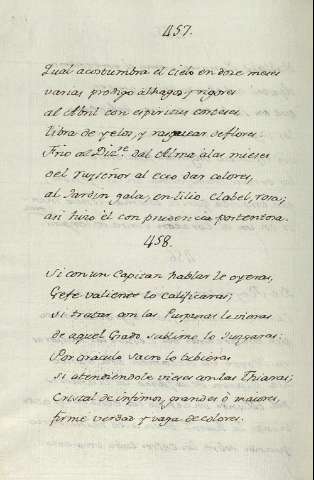 457.
Qual acostumbra el cielo en doze meses
varias prodigo alhagos, y rigores
al Abril con espiritus corteses
libra de yelos, y raquear de flores.
Frio al Diz.e dal Alma à las mieses
del ruyseñor al eco dar colores,
al Jardin gala, en lilio, Clabel, rosa;
asi hizo èl con prudencia portentosa.
458.
Si con un Capitan hablar le oyeras,
Gefe valiente lo calificaras;
si tratar con las Purpuras le vieras
de aquel Grado sublime lo juzgaras:
Por oraculo sacro lo tubieras
si atendiendole vieses con las Thiaras;
Cristal de infimos, grandes ò maiores,
firme verdad y vaga de colores.